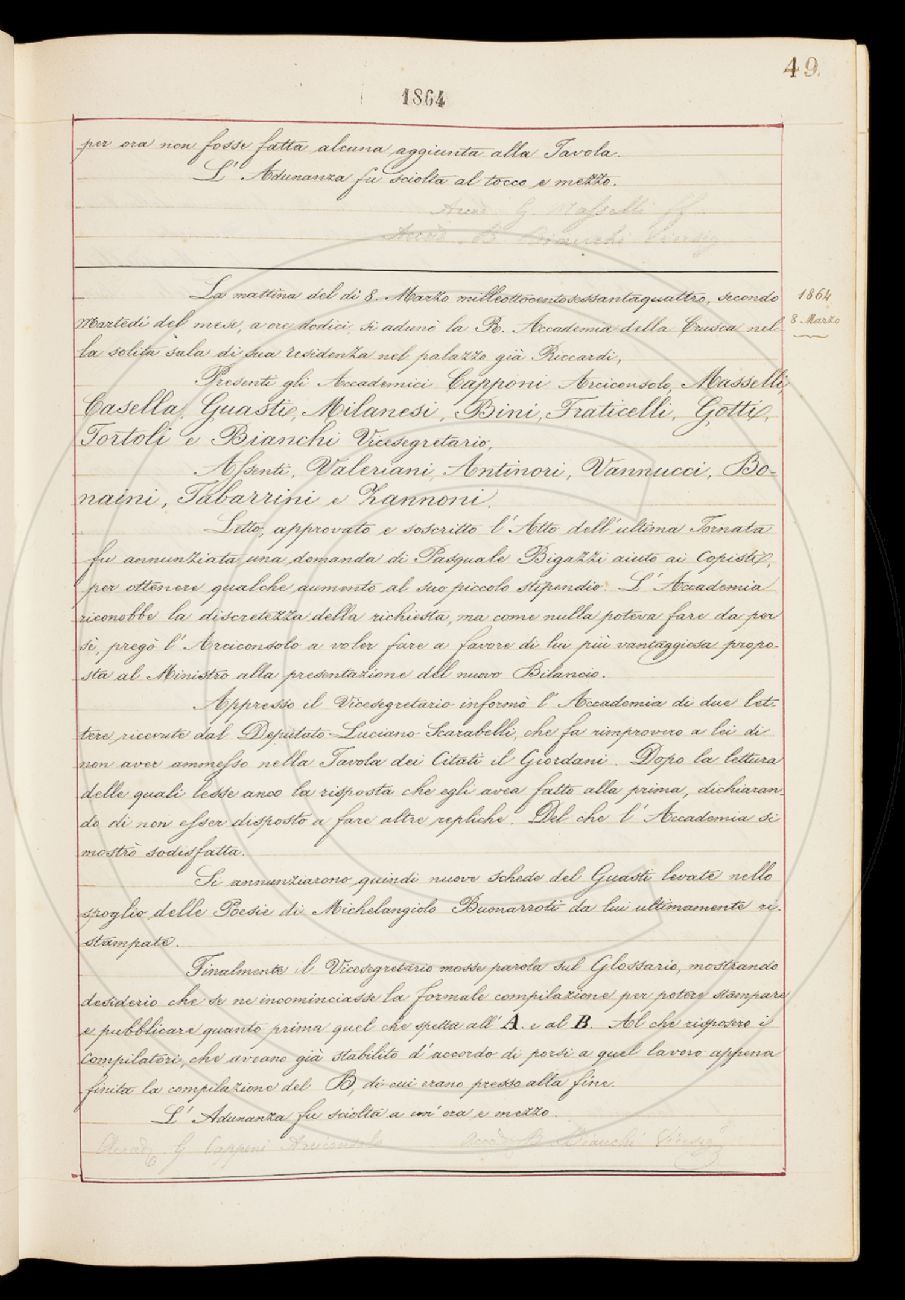 49.
1864
per ora non fosse fatta alcuna aggiunta alla Tavola.
L' Adunanza fu sciolta al tocco e mezzo.
Accad. G. Masselli ff.
Accad. B. Bianchi Viceseg.
1864
8. Marzo
La mattina del dì 8. Marzo milleottocentosessantaquattro, secondo
Martedì del mese, a ore dodici, si adunò la R. Accademia della Crusca nel-
la solita sala di sua residenza nel palazzo già Riccardi,
Presenti gli Accademici Capponi Arciconsolo, Masselli,
Casella, Guasti, Milanesi, Bini, Fraticelli, Gotti,
Tortoli e Bianchi Vicesegretario,
Assenti, Valeriani, Antinori, Vannucci, Bo-
naini, Tabarrini e Zannoni.
Letto, approvato e soscritto l' Atto dell' ultima Tornata
fu annunziata una domanda di Pasquale Bigazzi aiuto ai Copisti,
per ottenere qualche aumento al suo piccolo stipendio. L' Accademia
riconobbe la discretezza della richiesta, ma come nulla poteva fare da per
sè, pregò l' Arciconsolo a voler fare a favore di lui più vantaggiosa propo-
sta al Ministro alla presentazione del nuovo Bilancio.
Appresso il Vicesegretario informò l' Accademia di due let-
tere ricevute dal Deputato Luciano Scarabelli, che fa rimprovero a lei di
non aver ammesso nella Tavola dei Citati il Giordani. Dopo la lettura
delle quali lesse anco la risposta che egli avea fatto alla prima, dichiaran
do di non esser disposto a fare altre repliche. Del che l' Accademia si
mostrò sodisfatta.
Si annunziarono quindi nuove schede del Guasti levate nello
spoglio delle Poesie di Michelangiolo Buonarroti da lui ultimamente ri-
stampate.
Finalmente il Vicesegretario mosse parola sul Glossario, mostrando
desiderio che se ne incominciasse la formale compilazione per potere stampare
e pubblicare quanto prima quel che spetta all' A. e al B. Al che risposero i
Compilatori, che aveano già stabilito d' accordo di porsi a quel lavoro appena
finita la compilazione del B, di cui erano presso alla fine.
L' Adunanza fu sciolta a un' ora e mezzo.
Accad. G. Capponi Arciconsolo Accad. B. Bianchi Viceseg.